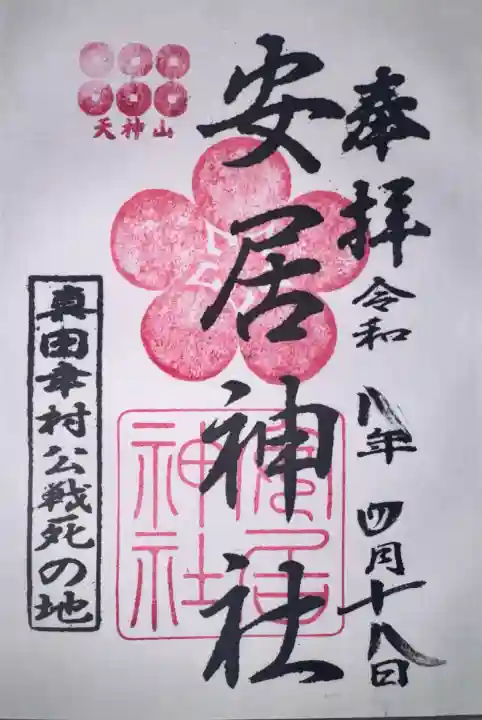 奉拝
令和八年四月十八日
安居神社
安居神社
天神山
真田幸村公戦死の地